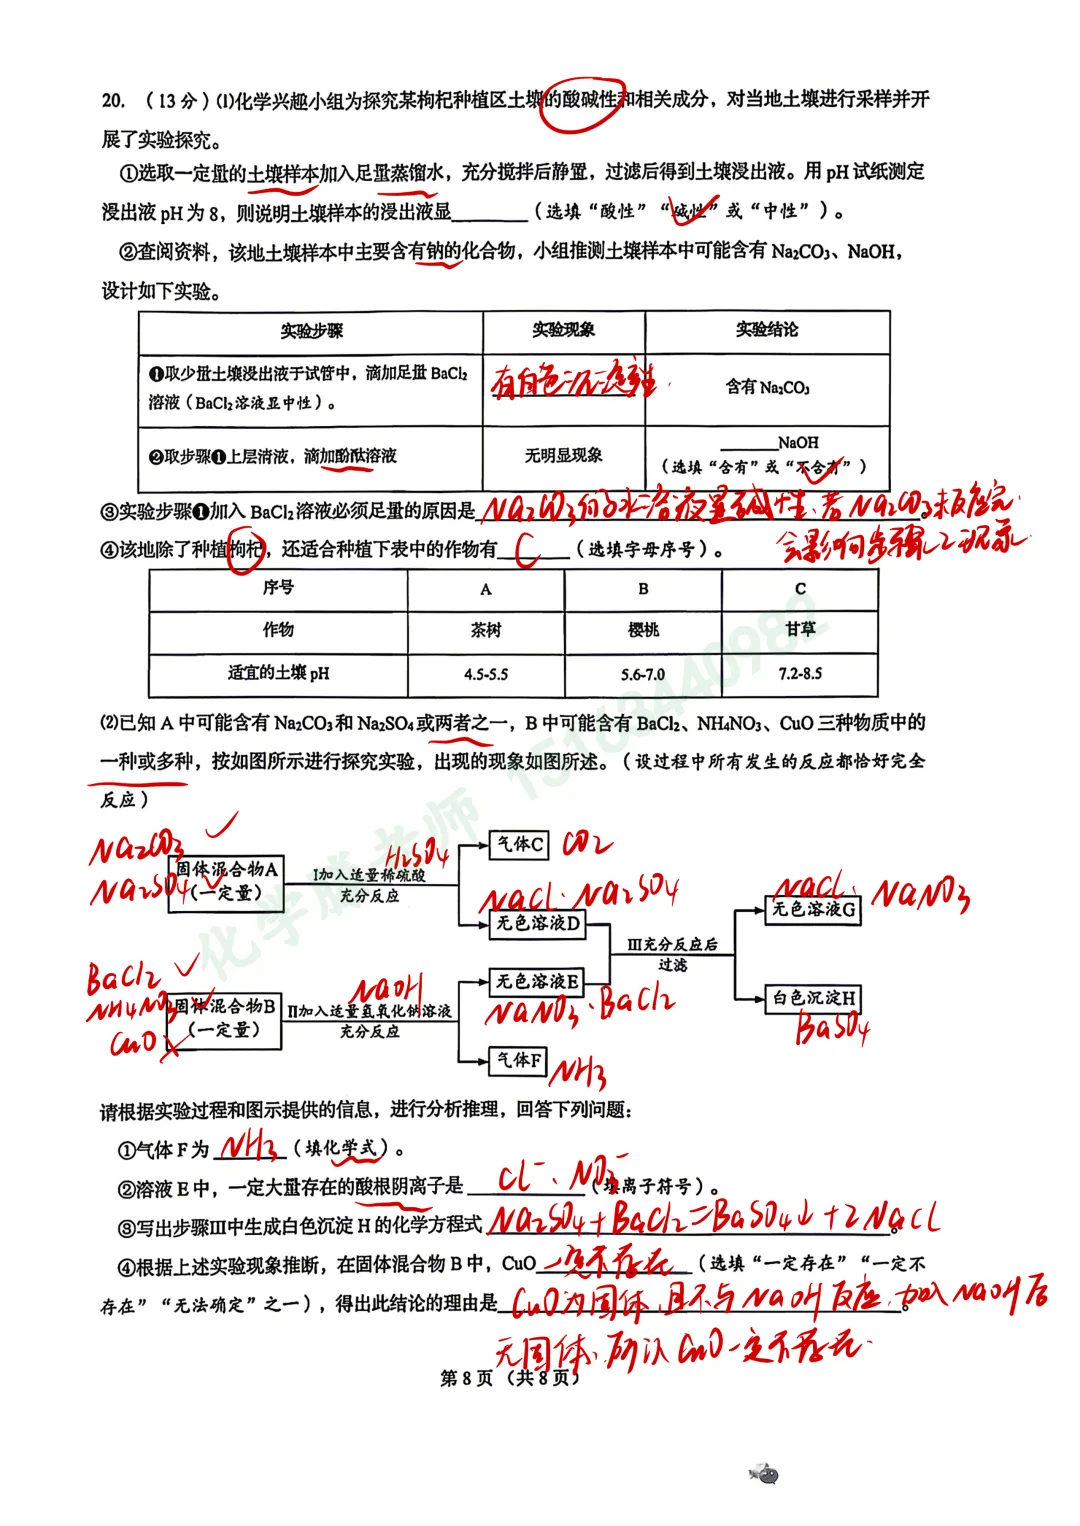 20. （13 分）⑴化学兴趣小组为探究某枸杞种植区土壤的酸碱性和相关成分，对当地土壤进行采样并开
展了实验探究。
①选取一定量的土壤样本加入足量蒸馏水，充分搅拌后静置，过滤后得到土壤浸出液。用 pH 试纸测定
浸出液 pH 为 8，则说明土壤样本的浸出液显________（选填“酸性”“碱性”或“中性”）。
②查阅资料，该地土壤样本中主要含有钠的化合物，小组推测土壤样本中可能含有 Na₂CO₃、NaOH，
设计如下实验。
实验步骤 实验现象 实验结论
❶取少量土壤浸出液于试管中，滴加足量 BaCl₂
溶液（BaCl₂ 溶液显中性）。
有白色沉淀产生.
含有 Na₂CO₃
❷取步骤❶上层清液，滴加酚酞溶液
无明显现象
______NaOH
（选填“含有”或“不含有”）
③实验步骤❶加入 BaCl₂ 溶液必须足量的原因是 Na₂CO₃的水溶液显碱性、若Na₂CO₃未反应完.
会影响步骤2现象
④该地除了种植枸杞，还适合种植下表中的作物有 C （选填字母序号）。
序号 A B C
作物 茶树 樱桃 甘草
适宜的土壤 pH 4.5-5.5 5.6-7.0 7.2-8.5
⑵已知 A 中可能含有 Na₂CO₃ 和 Na₂SO₄ 或两者之一，B 中可能含有 BaCl₂、NH₄NO₃、CuO 三种物质中的
一种或多种，按如图所示进行探究实验，出现的现象如图所述。（设过程中所有发生的反应都恰好完全
反应）
Na₂CO₃
Na₂SO₄
固体混合物A
（一定量）
H₂SO₄
Ⅰ加入适量稀硫酸
充分反应
气体C
CO₂
NaCl、Na₂SO₄
无色溶液D
BaCl₂
NH₄NO₃
CuO
固体混合物B
（一定量）
NaOH
Ⅱ加入适量氢氧化钠溶液
充分反应
无色溶液E
NaNO₃、BaCl₂
气体F
NH₃
Ⅲ充分反应后
过滤
NaCl、NaNO₃
无色溶液G
白色沉淀H
BaSO₄
请根据实验过程和图示提供的信息，进行分析推理，回答下列问题：
①气体 F 为 NH₃ （填化学式）。
②溶液 E 中，一定大量存在的酸根阴离子是 Cl⁻、NO₃⁻ （填离子符号）。
③写出步骤Ⅲ中生成白色沉淀 H 的化学方程式 Na₂SO₄+BaCl₂=BaSO₄↓+2NaCl 。
④根据上述实验现象推断，在固体混合物 B 中，CuO 一定不存在 （选填“一定存在”“一定不
存在”“无法确定”之一），得出此结论的理由是 CuO为固体,且不与NaOH反应,加入NaOH后
无固体、所以CuO一定不存在.
第 8 页（共 8 页）
化学滕老师 15163440982